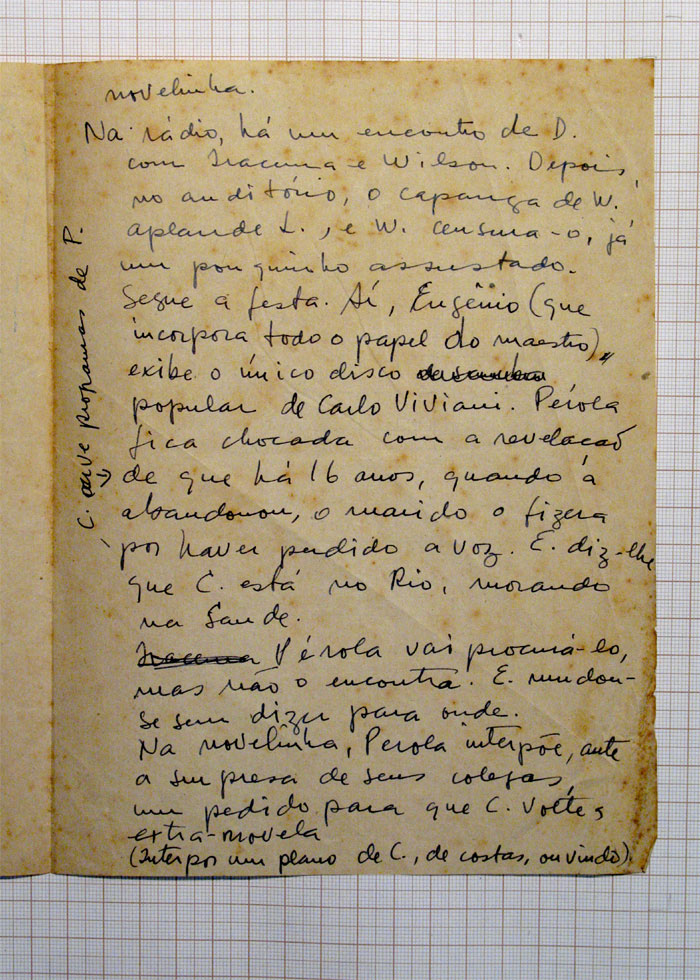 novelinha.
Na rádio, há um encontro de D.
com Iracema e Wilson. Depois,
no auditório, o capanga de W.
aplaude L., e W. censura-o, já
um pouquinho assustado.
Segue a festa. Aí, Eugênio (que
incorpora todo o papel do maestro),
exibe o único disco
popular de Carlo Viviani. Pérola
fica chocada com a revelação
de que há 16 anos, quando a
abandonou, o marido o fizera
por haver perdido a voz. E. diz-lhe
que C. está no Rio, morando
na Saude.
Iracema Pérola vai procurá-lo,
mas não o encontra. E. mudou-
se sem dizer para onde.
Na novelinha, Perola interpõe, ante
a surpresa de seus colegas,
um pedido para que C. volte,
extra-novela
(Interpor um plano de C., de costas, ouvindo).
C. ouve programas de P.